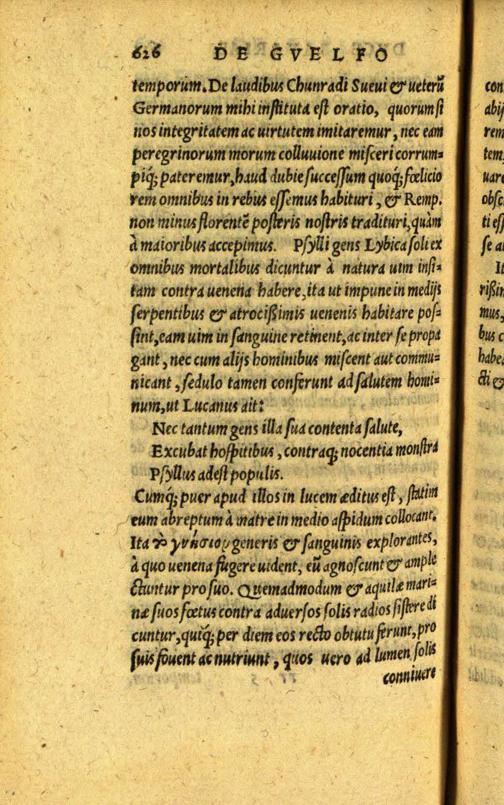 626 DE GVELFO
temporum. De laudibus Chunradi Sueui & ueterū
Germanorum mihi instituta est oratio, quorum si
nos integritatem ac uirtutem imitaremur, nec eam
peregrinorum morum colluuione misceri corrum=
piq; pateremur, haud dubie successum quoq; fœlicio
rem omnibus in rebus essemus habituri, & Remp.
non minus florentē posteris nostris tradituri, quàm
à maioribus accepimus. Psylli gens Lybica soli ex
omnibus mortalibus dicuntur à natura uim insi=
tam contra uenena habere, ita ut impune in medijs
serpentibus & atrocißimis uenenis habitare pos=
sint, eam uim in sanguine retinent, ac inter se propa
gant, nec cum alijs hominibus miscent aut commu=
nicant, sedulo tamen conferunt ad salutem homi=
num, ut Lucanus ait:
Nec tantum gens illa sua contenta salute,
Excubat hospitibus, contraq; nocentia monstra
Psyllus adest populis.
Cumq; puer apud illos in lucem æditus est, statim
eum abreptum à matre in medio aspidum collocant.
Ita τὸ γνήσιον generis & sanguinis explorantes,
à quo uenena fugere uident, eū agnoscunt & ample
ctuntur pro suo. Quemadmodum & aquilæ mari=
næ suos fœtus contra aduersos solis radios sistere di
cuntur, quiq; per diem eos recto obtutu ferunt, pro
suis fouent ac nutriunt, quos uero ad lumen solis
conniuere
con
abij
rem
tem
uare
obsc
ti ess
se a
It
rißin
mus,
bus c
habe
cti &